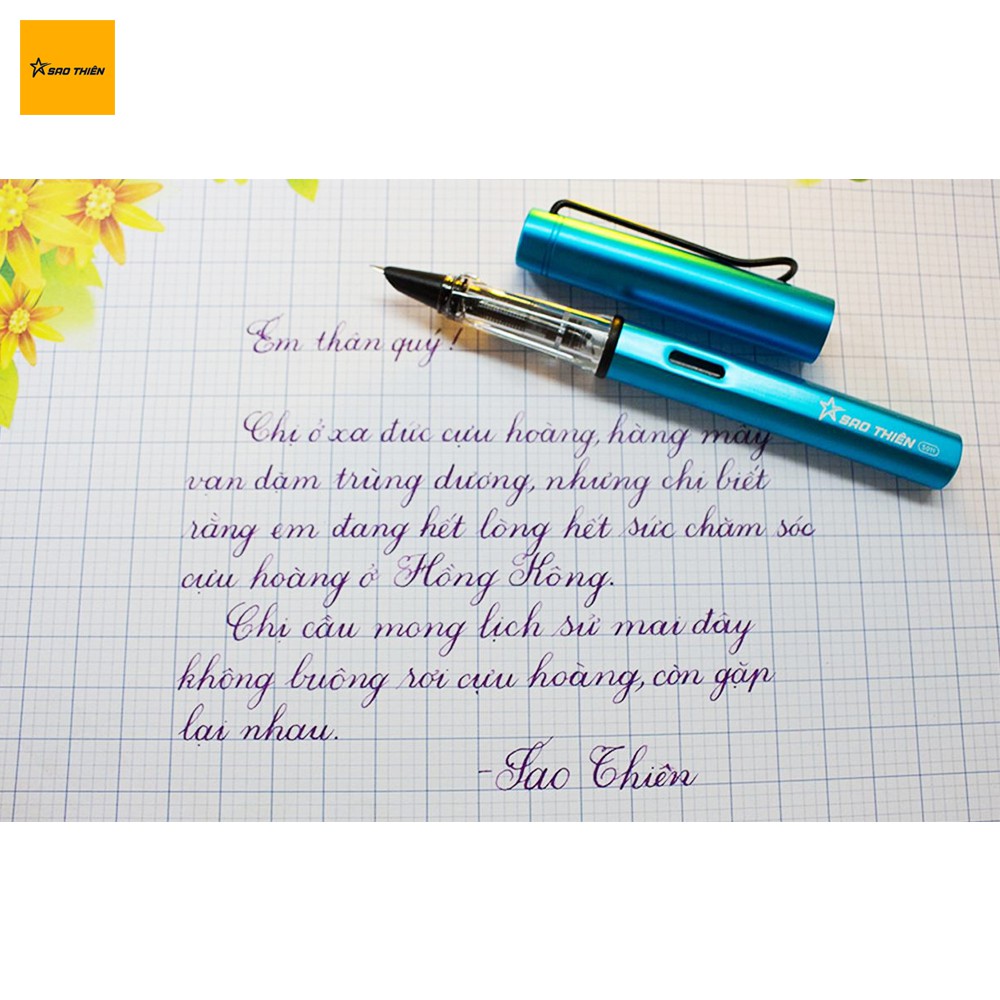 SAO THIÊN
Em thân quý!
SAO THIÊN
Chị ở xa đức cựu hoàng, hàng mấy
vạn dặm trùng dương, nhưng chị biết
rằng em đang hết lòng hết sức chăm sóc
cựu hoàng ở Hồng Kông.
Chị cầu mong lịch sử mai đây
không buông rơi cựu hoàng, còn gặp
lại nhau.
-Sao Thiên